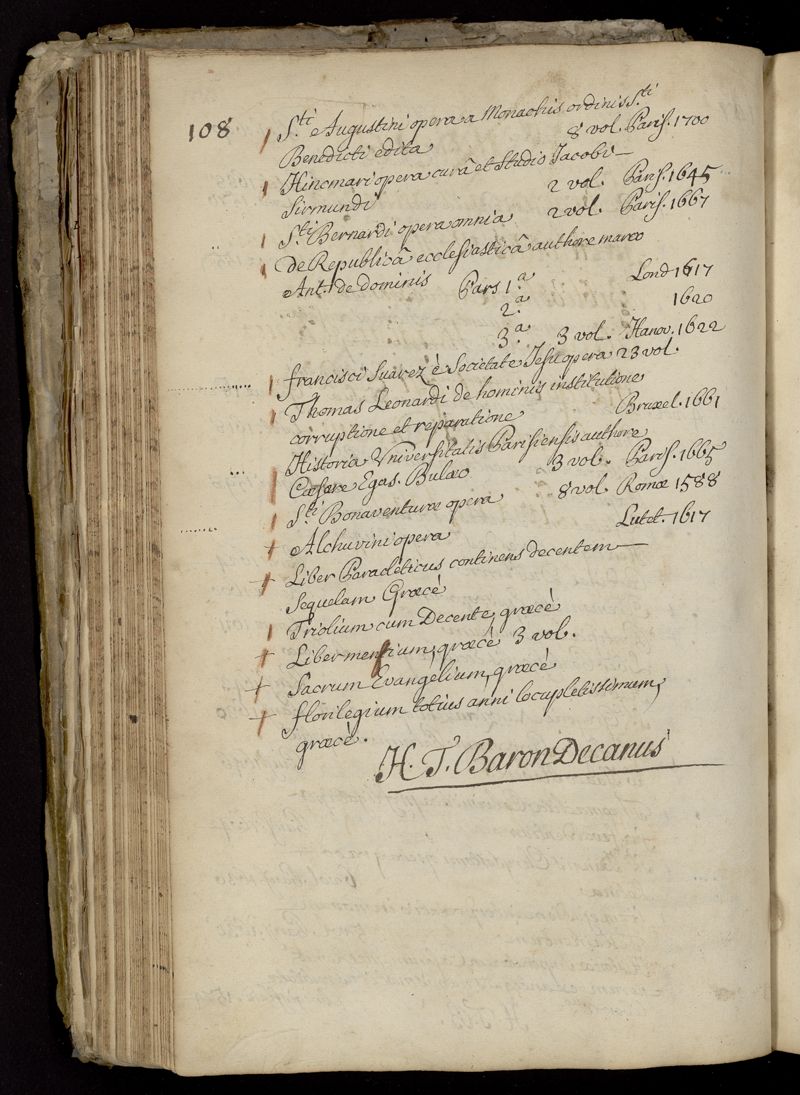 108
S.ti Augustini opera a Monachis ordinis S.ti
Benedicti edita 8 vol. Paris. 1700
Hincmari opera curâ et Studio Jacobi
Sirmundi 2 vol. Paris. 1645
S.ti Bernardi opera omnia 2 vol. Paris. 1667
de Republicâ ecclesiasticâ authore marco
Ant. de dominis Pars 1.a Lond 1617
2.a 1620
3.a 3 vol. Hanov. 1622
francisci Suarez è Societate Jesu opera 23 vol.
Thomas Leonardi de hominis institutione
corruptione et reparatione Bruxel. 1661
Historia Universitatis Parisiensis authore
Cæsare Egas. Bulæo 3 vol. Paris. 1665
S.ti Bonaventuræ opera 8 vol. Romæ 1588
Alchuvini opera Lutet. 1617
Liber Paracleticus continens decentem
Sequelam Græcè
Triolium cum Decente, græcè
Liber mensium, græcè 3 vol.
Sacrum Evangelium, græcè
florilegium totius anni locupletissimum,
græcè.
H. T. Baron Decanus